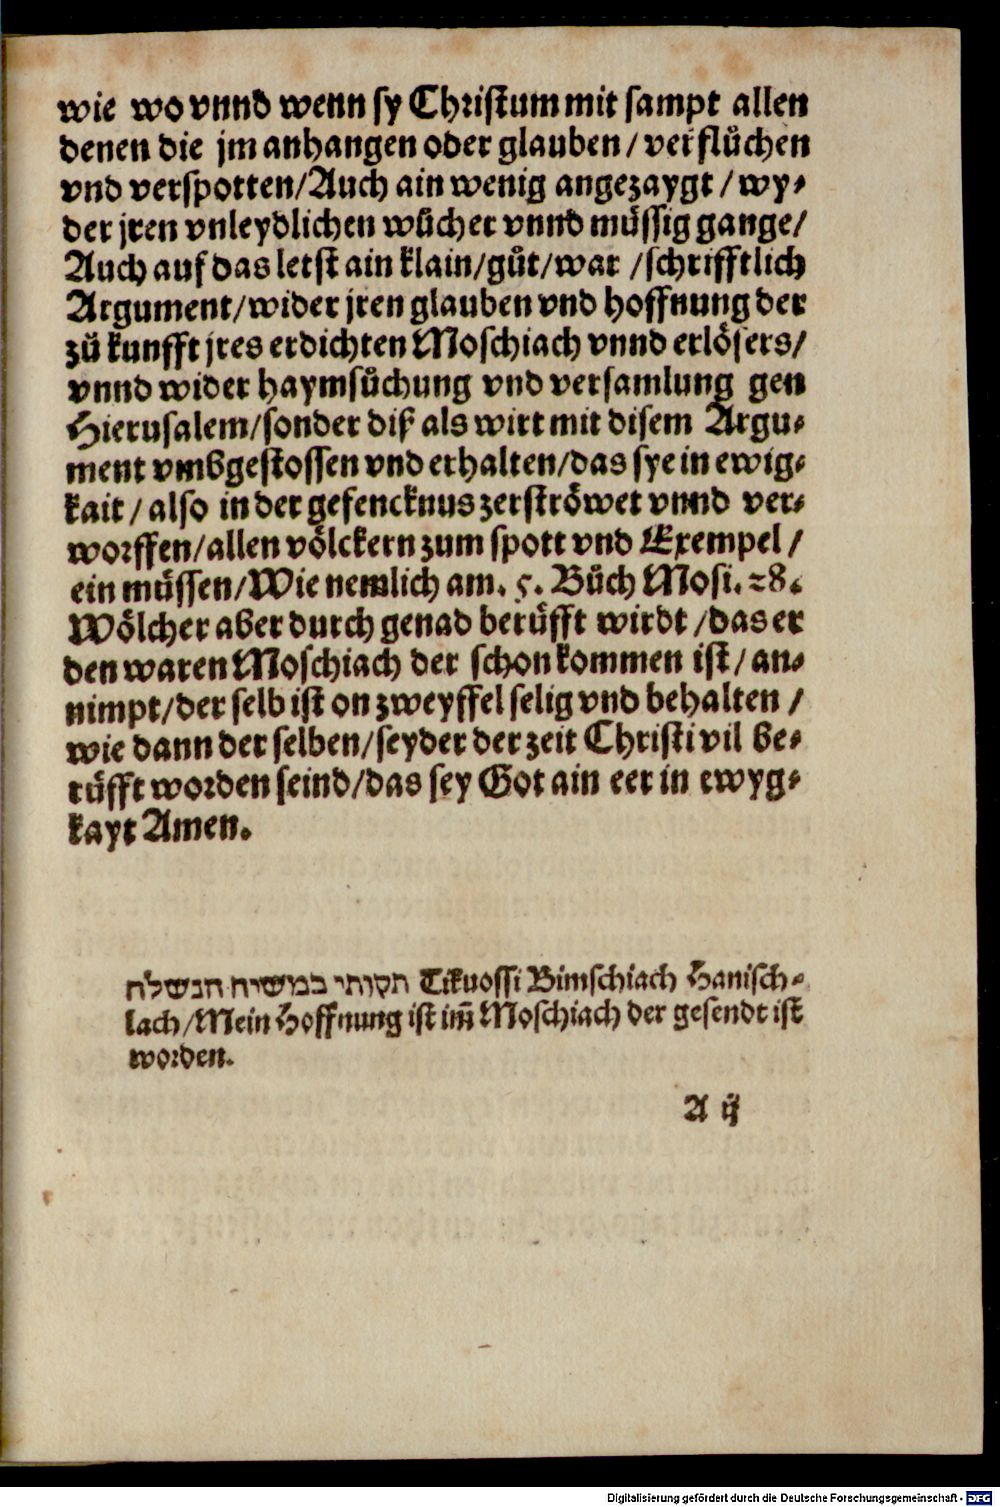 wie wo vnnd wenn sy Christum mit sampt allen
denen die jm anhangen oder glauben / verflůchen
vnd verspotten/Auch ain wenig angezaygt / wy⸗
der jren vnleydlichen wůcher vnnd müssig gange/
Auch auf das letst ain klain/gůt/war /schrifftlich
Argument/wider jren glauben vnd hoffnung der
zů kunfft jres erdichten Moschiach vnnd erlösers/
vnnd wider haymsůchung vnd versamlung gen
Hierusalem/sonder diß als wirt mit disem Argu⸗
ment vmbgestossen vnd erhalten/das sye in ewig⸗
kait / also in der gefencknus zerströwet vnnd ver⸗
worffen/allen völckern zum spott vnd Exempel /
ein müssen/Wie nemlich am. 5. Bůch Mosi. 28.
Wölcher aber durch genad berüfft wirdt /das er
den waren Moschiach der schon kommen ist/ an⸗
nimpt/der selb ist on zweyffel selig vnd behalten /
wie dann der selben/seyder der zeit Christi vil be⸗
rüfft worden seind/das sey Got ain eer in ewyg⸗
kayt Amen.
תקותי במשיח הנשלח Tikuossi Bimschiach Hanisch⸗
lach/Mein Hoffnung ist im̃ Moschiach der gesendt ist
worden.
A ij
Digitalisierung gefördert durch die Deutsche Forschungsgemeinschaft - DFG